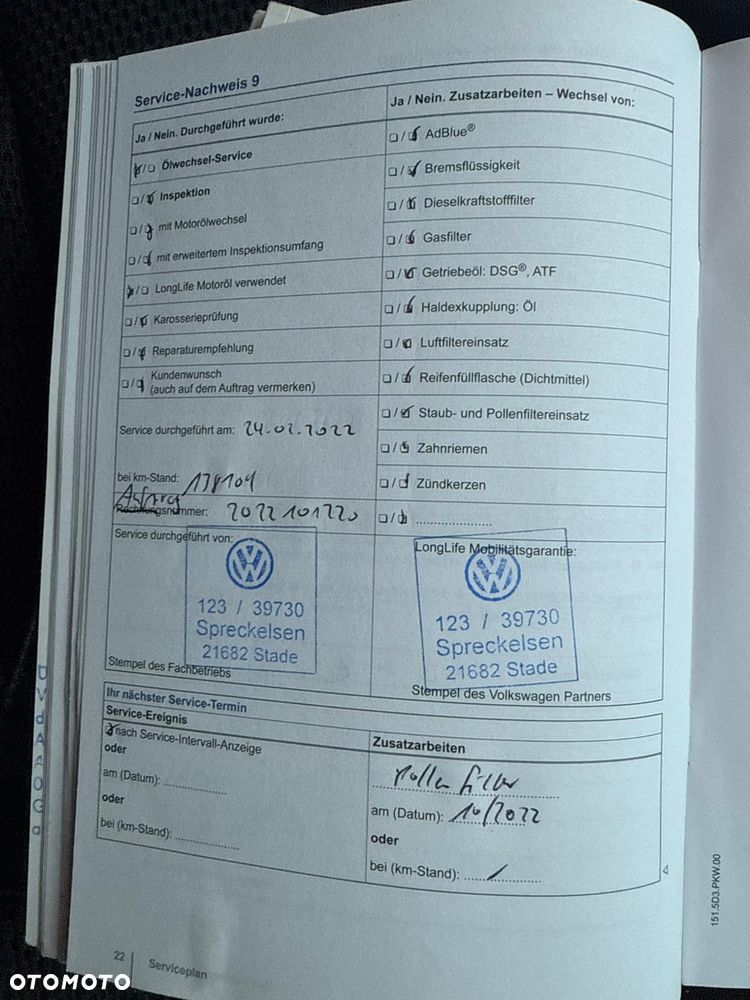 Service-Nachweis 9
Ja / Nein. Durchgeführt wurde:
☒/☐ Ölwechsel-Service
☐/☒ Inspektion
☐/☒ mit Motorölwechsel
☐/☒ mit erweitertem Inspektionsumfang
☒/☐ LongLife Motoröl verwendet
☐/☒ Karosserieprüfung
☐/☒ Reparaturempfehlung
☐/☒ Kundenwunsch
(auch auf dem Auftrag vermerken)
Service durchgeführt am: 24.02.2022
bei km-Stand: 138109
Auftrag
Rechnungsnummer: 2022101220
Service durchgeführt von:
123 / 39730
Spreckelsen
21682 Stade
Stempel des Fachbetriebs
Ja / Nein. Zusatzarbeiten – Wechsel von:
☐/☒ AdBlue®
☐/☒ Bremsflüssigkeit
☐/☒ Dieselkraftstofffilter
☐/☒ Gasfilter
☐/☒ Getriebeöl: DSG®, ATF
☐/☒ Haldexkupplung: Öl
☐/☒ Luftfiltereinsatz
☐/☒ Reifenfüllflasche (Dichtmittel)
☐/☒ Staub- und Pollenfiltereinsatz
☐/☒ Zahnriemen
☐/☒ Zündkerzen
☐/☒ .....................
LongLife Mobilitätsgarantie:
123 / 39730
Spreckelsen
21682 Stade
Stempel des Volkswagen Partners
Ihr nächster Service-Termin
Service-Ereignis
☒ nach Service-Intervall-Anzeige
oder
am (Datum): .................
oder
bei (km-Stand): .................
Zusatzarbeiten
Pollenfilter
am (Datum): 10/2022
oder
bei (km-Stand): /
22 Serviceplan
151.5D3.PKW.00
OTOMOTO